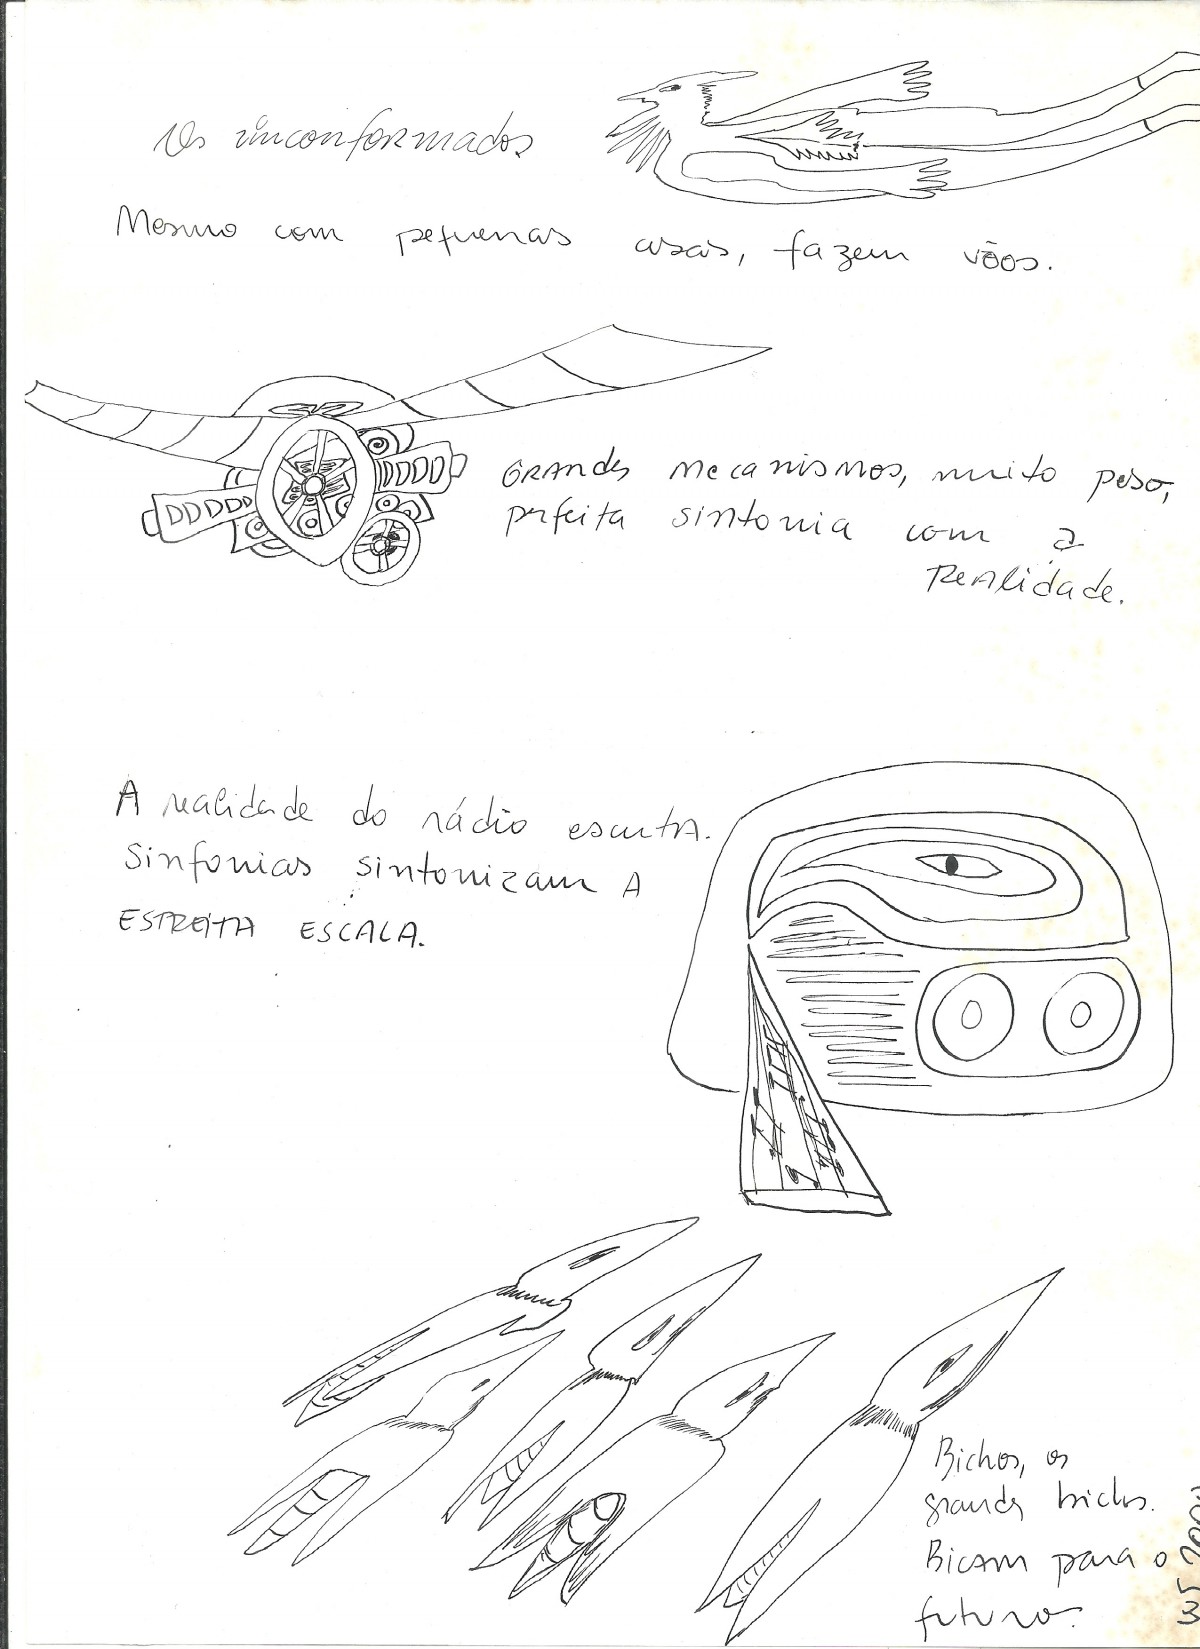 Os inconformados
Mesmo com pequenas asas, fazem vôos.
GRANDES mecanismos, muito peso,
perfeita sintonia com a
REAlidade.
A realidade do rádio escutA.
Sinfonias sintonizam A
ESTREITA ESCALA.
Bichos, os
grandes bichos.
Bicam para o
futuro.